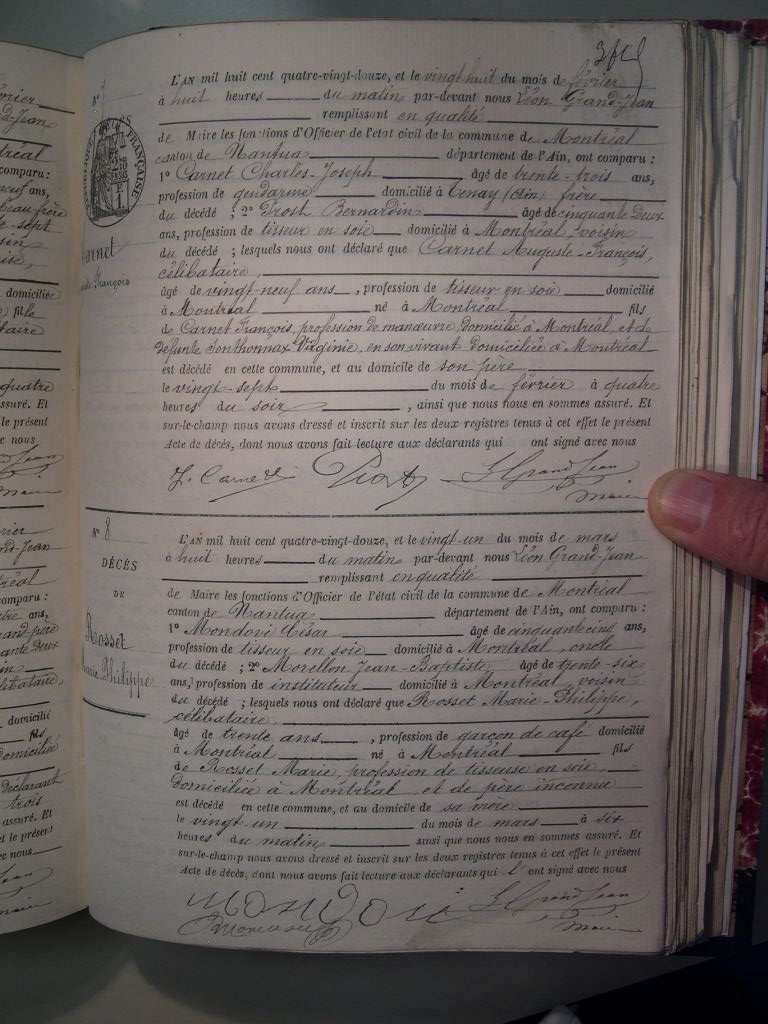 L'AN mil huit cent quatre-vingt-douze, et le vingt huit du mois de février
à huit heures du matin par-devant nous Léon Grand-Jean
remplissant en qualité
de Maire les fonctions d'Officier de l'état civil de la commune de Montréal
canton de Nantua département de l'Ain, ont comparu :
1° Carnet Charles-Joseph âgé de trente-trois ans,
profession de gendarme domicilié à Tenay (Ain) frère
du décédé ; 2° Prost Bernardin âgé de cinquante deux
ans, profession de tisseur en soie domicilié à Montréal, voisin
du décédé ; lesquels nous ont déclaré que Carnet Auguste-François,
célibataire,
âgé de vingt-neuf ans, profession de tisseur en soie domicilié
à Montréal né à Montréal fils
de Carnet François, profession de manœuvre, domicilié à Montréal, et de
défunte Sonthonnax Virginie, en son vivant domiciliée à Montréal
est décédé en cette commune, et au domicile de son père
le vingt-sept du mois de février à quatre
heures du soir, ainsi que nous nous en sommes assuré. Et
sur-le-champ nous avons dressé et inscrit sur les deux registres tenus à cet effet le présent
Acte de décès, dont nous avons fait lecture aux déclarants qui ont signé avec nous
Carnet Prost L Grand Jean
Maire
N° 8
DÉCÈS
DE
Rosset
Marie Philippe
L'AN mil huit cent quatre-vingt-douze, et le vingt-un du mois de mars
à huit heures du matin par-devant nous Léon Grand-Jean
remplissant en qualité
de Maire les fonctions d'Officier de l'état civil de la commune de Montréal
canton de Nantua département de l'Ain, ont comparu :
1° Mondoni César âgé de cinquante cinq ans,
profession de tisseur en soie domicilié à Montréal, oncle
du décédé ; 2° Morellon Jean-Baptiste, âgé de trente-six
ans, profession de instituteur domicilié à Montréal, voisin
du décédé ; lesquels nous ont déclaré que Rosset Marie-Philippe,
célibataire
âgé de trente ans, profession de garçon de café domicilié
à Montréal né à Montréal fils
de Rosset Marie, profession de tisseuse en soie,
domiciliée à Montréal et de père inconnu
est décédé en cette commune, et au domicile de sa mère
le vingt un du mois de mars à six
heures du matin ainsi que nous nous en sommes assuré. Et
sur-le-champ nous avons dressé et inscrit sur les deux registres tenus à cet effet le présent
Acte de décès, dont nous avons fait lecture aux déclarants qui l'ont signé avec nous
Mondoni L Grand Jean
Maire